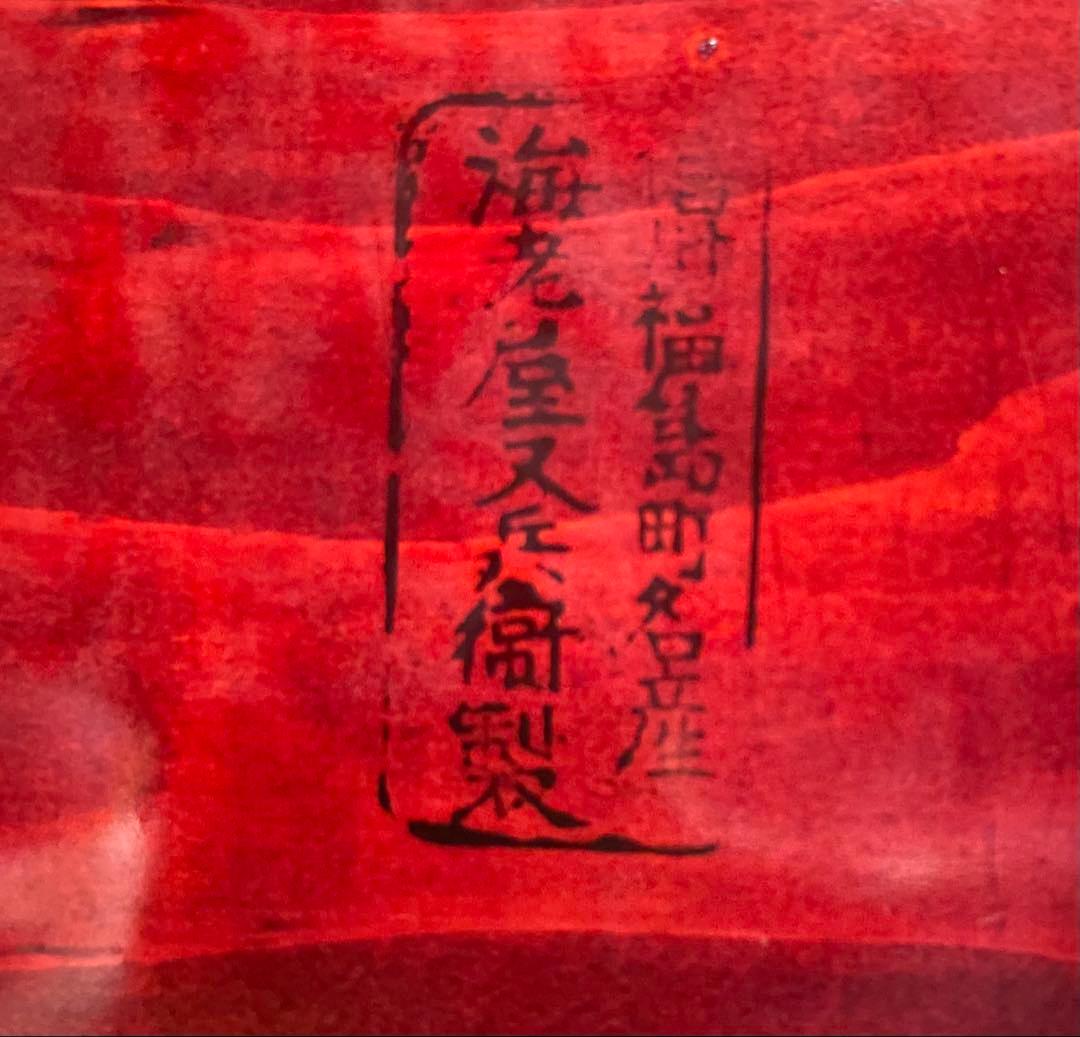 福島町名産
海老屋又兵衛製